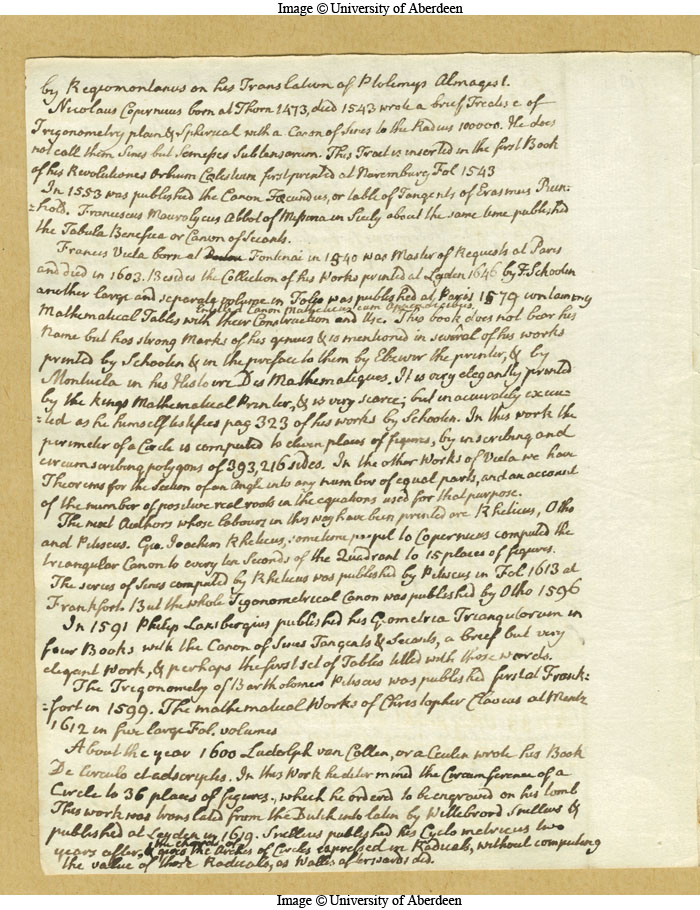 Image © University of Aberdeen
by Regiomontanus on his Translation of Ptolemys Almagest.
Nicolaus Copernicus born at Thorn 1473, died 1543 wrote a brief Treatise of
Trigonometry plain & Spherical with a Canon of Sines to the Radius 100000. He does
not call them Sines but Semisses Subtensarum. This Tract is inserted in the first Book
of his Revolutiones Orbium Cœlestium first printed at Nuremburg Fol 1543
In 1553 was published the Canon Fœcundus, or table of Tangents of Erasmus Rein-
=hold. Franciscus Maurolycus Abbot of Messina in Sicily about the same time published
the Tabula Benefica or Canon of Secants.
Francis Vieta born at Fontinai in 1540 was Master of Requests at Paris
and died in 1603. Besides the Collection of his Works printed at Leyden 1646 by F. Schooten
another large and separate volume in Folio was published at Paris 1579 containing
Entitled Canon Mathematicus cum
Mathematical Tables with their Construction and Use. This book does not bear his
Name but has strong Marks of his genius & is mentioned in several of his works
printed by Schooten & in the preface to them by Elzevir the printer, & by
Montucla in his Histoire Des Mathematiques. It is very elegantly printed
by the Kings Mathematical Printer, & is very scarce; but inaccurately execu-
=ted as he himself testifies pag 323 of his works by Schooten. In this work the
perimeter of a Circle is computed to eleven places of figures, by inscribing and
circumscribing polygons of 393,216 sides. In the other Works of Vieta we have
Theorems for the Section of an Angle into any number of equal parts, and an account
of the number of positive real roots in the equations used for that purpose.
The next Authors whose labours in this way have been printed are Rheticus, Otho
and Pitiscus. Geo. Joachim Rheticus, sometime pupil to Copernicus computed the
triangular Canon to every ten Seconds of the Quadrant to 15 places of figures.
The series of Sines computed by Rheticus was published by Pitiscus in Fol 1613 at
Frankfort. But the whole Tigonometrical Canon was published by Otho 1596
In 1591 Philip Lansbergius published his Geometria Triangulorum in
four Books with the Canon of Sines Tangents & Secants, a brief but very
elegant Work, & perhaps the first set of Tables titled with those words.
The Trigonometry of Bartholomew Pitiscus was published first at Frank-
=fort in 1599. The mathematical Works of Christopher Clavius at Mentz
1612 in five large Fol. volumes
About the year 1600 Ludolph van Collen, or a Ceulen wrote his Book
De Circulo et adscriptis. In this Work he determined the Circumference of a
Circle to 36 places of figures, which he ordered to be engraved on his tomb
This work was translated from the Dutch into latin by Willebrord Snellius &
published at Leyden in 1619. Snellius published his Cyclometricus two
the chords of
years after, & gives the Arches of Circles expressed in Radicals, without computing
the value of those Radicals, as Wallis afterwards did.
Image © University of Aberdeen